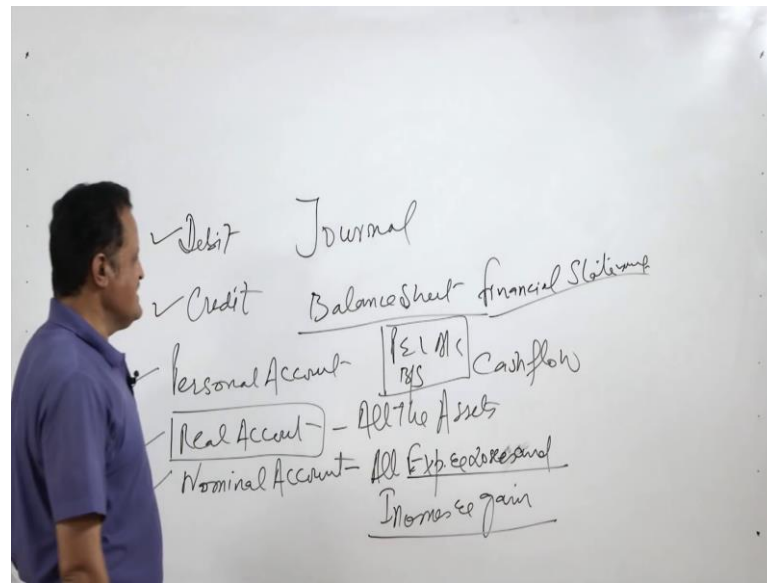 ✓ Debit Journal
✓ Credit Balance Sheet financial Statement
Personal Account P&L A/c Cashflow
B/S
Real Account - All The Assets
Nominal Account - All Exp. & losses and
Incomes & gain